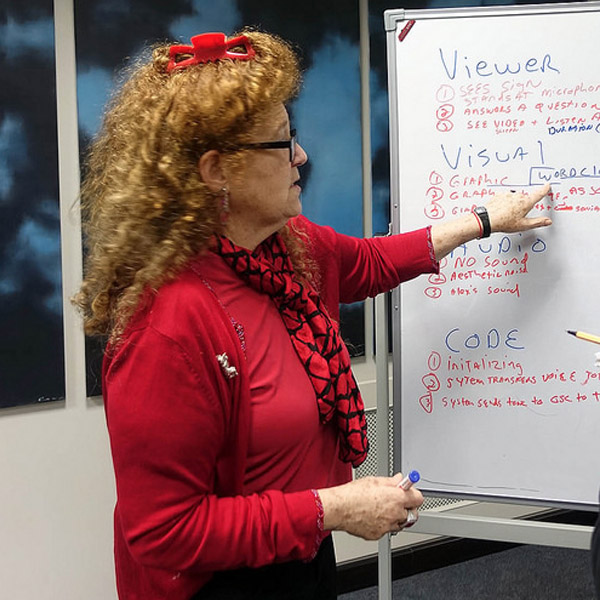 VIEWER
① SEES SIGN
STANDS AT microphon
② ANSWERS A QUESTION
③ SEE VIDEO + LISTEN A
DURATION (
VISUAL
① GRAPHIC WORDCL
② GRAPH AS SC
③
AUDIO
① NO SOUND
② Aesthetic noise
③ Alex's sound
CODE
① initalizing
② SYSTEM TRANSFERS VOICE TO
③ System sends text to GSC to t